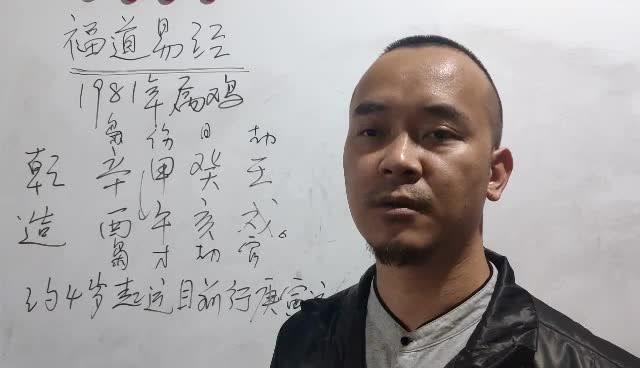 福道易经
1981年属鸡
枭 伤 日 劫
乾 辛 甲 癸 壬
造 酉 午 亥 戌。
枭 才 劫 官
约4岁起运目前行庚寅